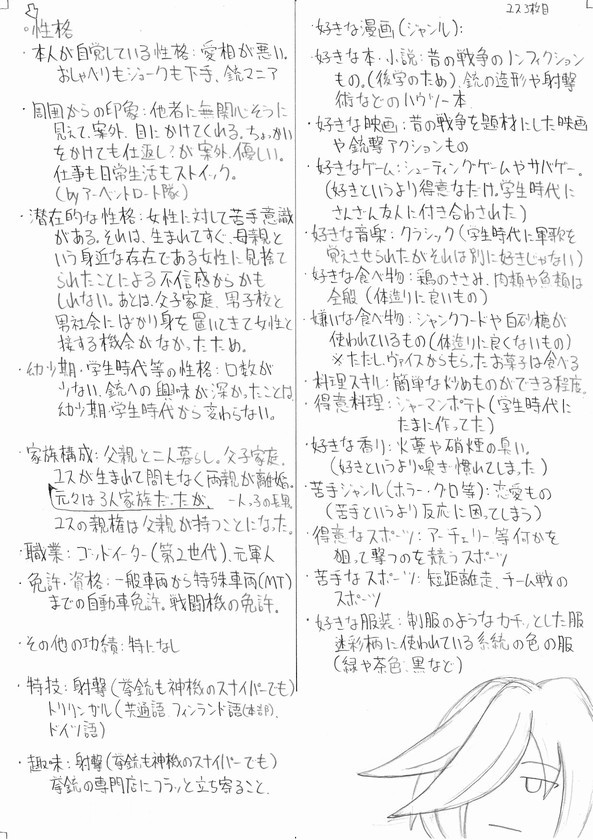 ・性格
・本人が自覚している性格：愛想が悪い。
おしゃべりもジョークも下手、銃マニア
・周囲からの印象：他者に無関心そうに
見えて、案外、目にかけてくれる。ちょっかい
をかけても仕返し？が案外、優しい。
仕事も日常生活もストイック。
(by アーベントロート隊)
・潜在的な性格：女性に対して苦手意識
がある。それは、生まれてすぐ、母親と
いう身近な存在である女性に見捨て
られたことによる不信感からかも
しれない。あとは、父子家庭、男子校と
男社会にばかり身を置いてきて女性と
接する機会がなかったため。
・幼少期・学生時代等の性格：口数が
少ない。銃への興味が深かったことは
幼少期・学生時代から変わらない。
・家族構成：父親と二人暮らし。父子家庭。
ユスが生まれて間もなく両親が離婚。
元々は3人家族だったが、 一人っ子の長男
ユスの親権は父親が持つことになった。
・職業：ゴッドイーター(第2世代)、元軍人
・免許・資格：一般車両から特殊車両(MT)
までの自動車免許。戦闘機の免許。
・その他の功績：特になし
・特技：射撃(拳銃も神機のスナイパーでも)
トリリンガル(共通語、フィンランド語(本部)、
ドイツ語)
・趣味：射撃(拳銃も神機のスナイパーでも)
拳銃の専門店にフラッと立ち寄ること。
ユス3枚目
・好きな漫画(ジャンル)：
・好きな本・小説：昔の戦争のノンフィクション
もの。(後学のため)、銃の造形や射撃
術などのハウツー本
・好きな映画：昔の戦争を題材にした映画
や銃撃アクションもの
・好きなゲーム：シューティングゲームやサバゲー。
(好きというより得意なだけ。学生時代に
さんざん友人に付き合わされた)
・好きな音楽：クラシック(学生時代に軍歌を
覚えさせられたがそれは別に好きじゃない)
・好きな食べ物：鶏のささみ、肉類や魚類は
全般(体造りに良いもの)
・嫌いな食べ物：ジャンクフードや白砂糖が
使われているもの(体造りに良くないもの)
※ただし、ヴァイスからもらったお菓子は食べる
・料理スキル：簡単な炒めものができる程度。
・得意料理：ジャーマンポテト(学生時代に
たまに作ってた)
・好きな香り：火薬や硝煙の臭い。
(好きというより嗅ぎ慣れてしまった)
・苦手ジャンル(ホラー・グロ等)：恋愛もの
(苦手というより反応に困ってしまう)
・得意なスポーツ：アーチェリー等何かを
狙って撃つのを競うスポーツ
・苦手なスポーツ：短距離走、チーム戦の
スポーツ
・好きな服装：制服のようなカチッとした服
迷彩柄に使われている系統の色の服
(緑や茶色、黒など)